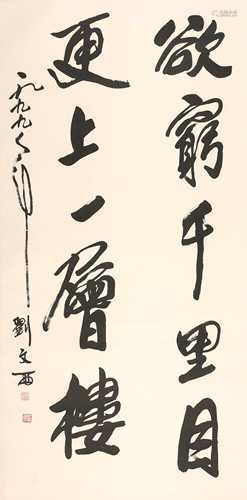 欲窮千里目
更上一層樓
一九九八年
劉文西